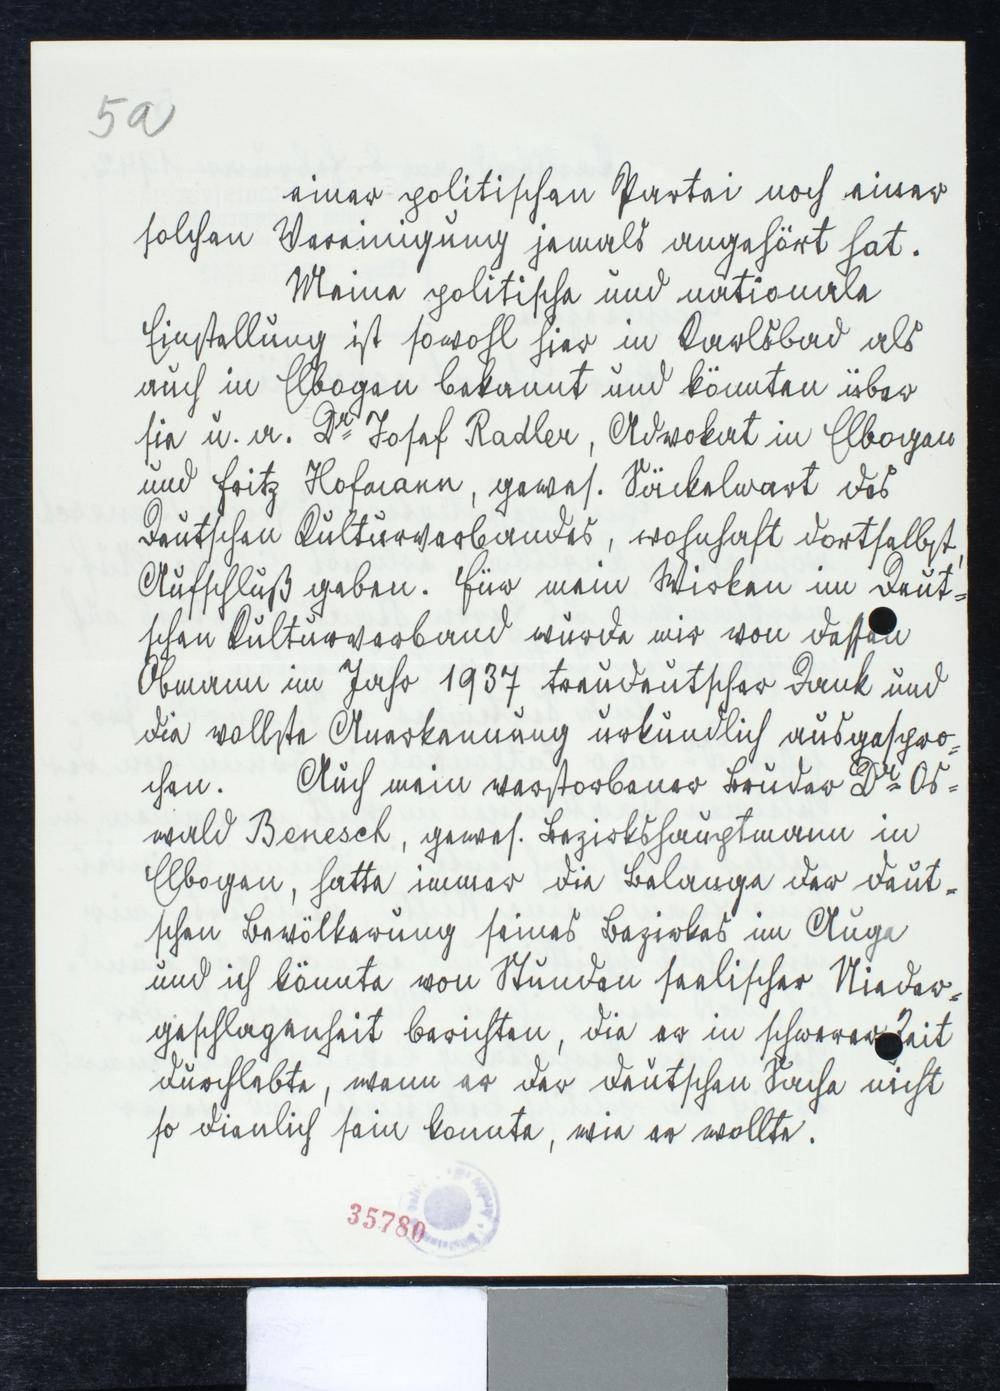 5a
einer politischen Partei noch einer
solchen Vereinigung jemals angehört hat.
Meine politische und nationale
Einstellung ist sowohl hier in Karlsbad als
auch in Elbogen bekannt und könnten über
sie u. a. Dr Josef Radler, Advokat in Elbogen
und Fritz Hofmann, gewes. Säckelwart des
Deutschen Kulturverbandes, wohnhaft dortselbst,
Aufschluß geben. Für mein Wirken im Deut-
schen Kulturverband wurde mir von dessen
Obmann im Jahr 1937 treudeutscher Dank und
die vollste Anerkennung urkundlich ausgespro-
chen. Auch mein verstorbener Bruder Dr Os-
wald Benesch, gewes. Bezirkshauptmann in
Elbogen, hatte immer die Belange der deut-
schen Bevölkerung seines Bezirkes im Auge
und ich könnte von Stunden seelischer Nieder-
geschlagenheit berichten, die er in schwerer Zeit
durchlebte, wenn er der deutschen Sache nicht
so dienlich sein konnte, wie er wollte.
35780